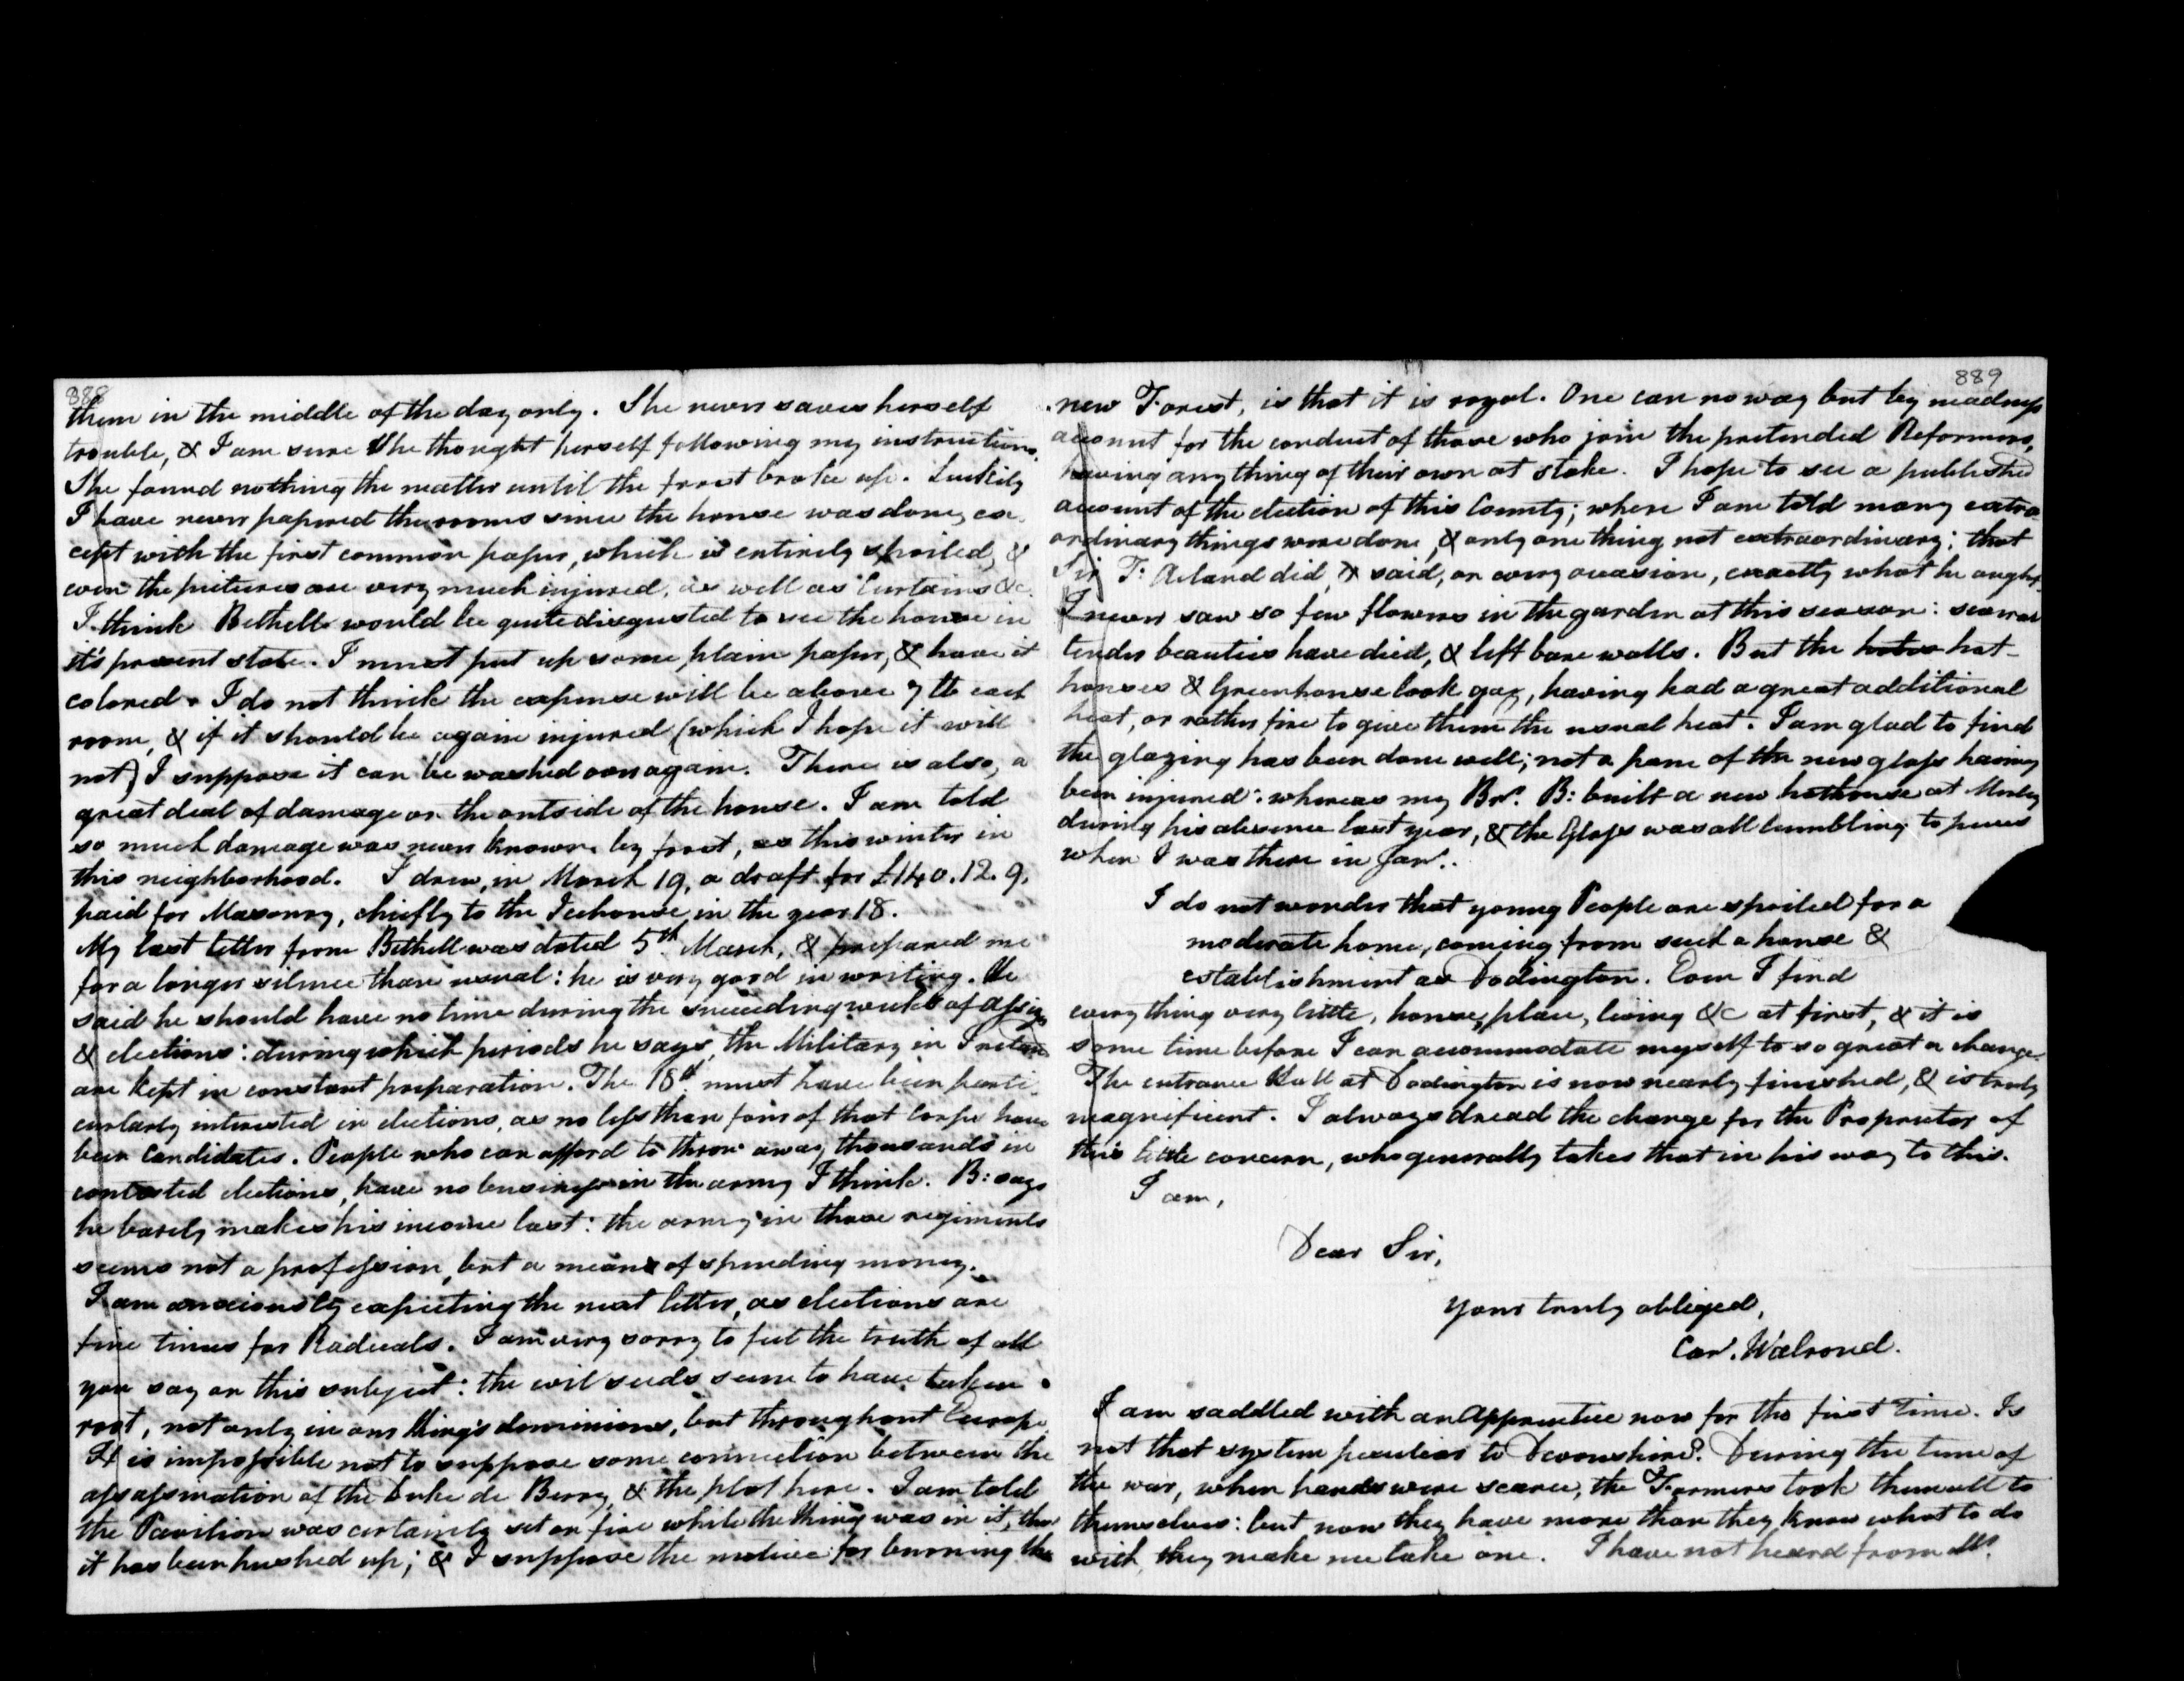 888
them in the middle of the day only. She never saves herself
trouble, & I am sure She thought herself following my instructions.
She found nothing the matter until the frost broke up. Luckily
I have never papered the rooms since the house was done, ex
cept with the first common paper, which is entirely spoiled, &
even the pictures are very much injured, as well as Curtains &c.
I think Bethell would be quite disgusted to see the house in
it's present state. I must put up some plain paper, & have it
colored. I do not think the expense will be above 7 lb each
room, & if it should be again injured (which I hope it will
not) I suppose it can be washed over again. There is also, a
great deal of damage on the outside of the house. I am told
so much damage was never known by frost, as this winter in
this neighborhood. I drew, in March 19, a draft for £140.12.9,
paid for Masonry, chiefly to the Icehouse, in the year 18.
My last letter from Bethell was dated 5th March, & prepared me
for a longer silence than usual: he is very good in writing. He
said he should have no time during the succeeding weeks of assizes
& elections: during which periods he says, the Military in Ireland
are kept in constant preparation. The 18th must have been parti
cularly interested in elections, as no less than four of that Corps have
been Candidates. People who can afford to throw away thousands in
contested elections, have no business in the army I think. B: says
he barely makes his income last: the army in those regiments
seems not a profession, but a means of spending money.
I am anxiously expecting the next letter, as elections are
fine times for Radicals. I am very sorry to feel the truth of all
you say on this subject: the evil seeds seem to have taken
root, not only in our King's dominions, but throughout Europe.
It is impossible not to suppose some connection between the
assassination of the Duke de Berry, & the plot here. I am told
the Pavilion was certainly set on fire while the King was in it, tho'
it has been hushed up; & I suppose the motive for burning the
889
new Forest, is that it is royal. One can no way but by madness
account for the conduct of those who join the pretended Reformers,
having any thing of their own at stake. I hope to see a published
account of the election of this County; where I am told many extra
ordinary things were done, & only one thing not extraordinary; that
Sir T: Acland did, & said, on every occasion, exactly what he ought.
I never saw so few flowers in the garden at this season: several
tender beauties have died, & left bare walls. But the hot-
houses & Greenhouse look gay, having had a great additional
heat, or rather fire to give them the usual heat. I am glad to find
the glazing has been done well; not a pane of the new glass having
been injured: whereas my Br. B: built a new hothouse at
during his absence last year, & the Glass was all tumbling to pieces
when I was there in Janr.
I do not wonder that young People are spoiled for a
moderate home, coming from such a house &
establishment as Dodington. Even I find
every thing very little, house, place, living &c at first, & it is
some time before I can accommodate myself to so great a change.
The entrance Hall at Dodington is now nearly finished, & is truly
magnificent. I always dread the change for the Proprietor of
this little concern, who generally takes that in his way to this.
I am,
Dear Sir,
Yours truly obliged,
Car. Walrond.
I am saddled with an Apprentice now for the first time. Is
not that system peculiar to Devonshire? During the time of
the war, when hands were scarce, the Farmers took them all to
themselves: but now they have more than they know what to do
with, they make me take one. I have not heard from Mr.